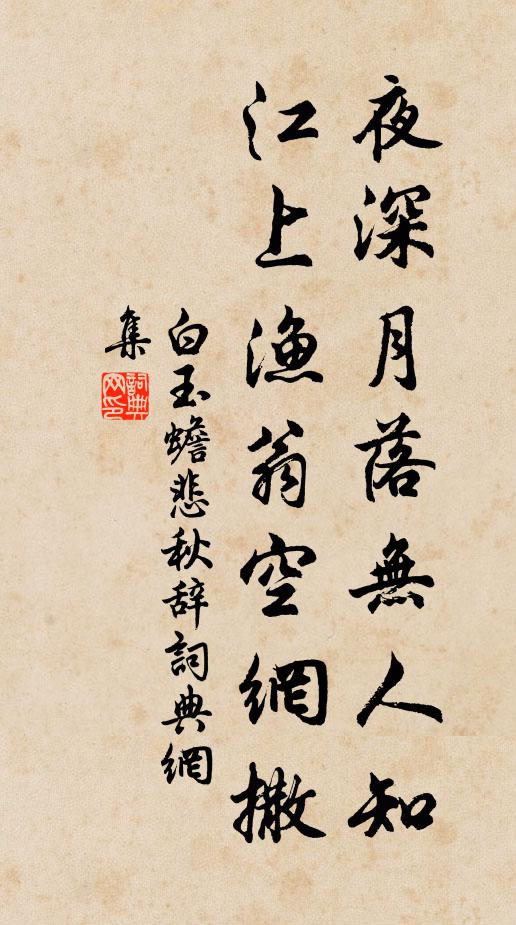 夜深月落無人知
江上漁翁空網撒
白玉蟾悲秋辞詞典網
集
詞典網印